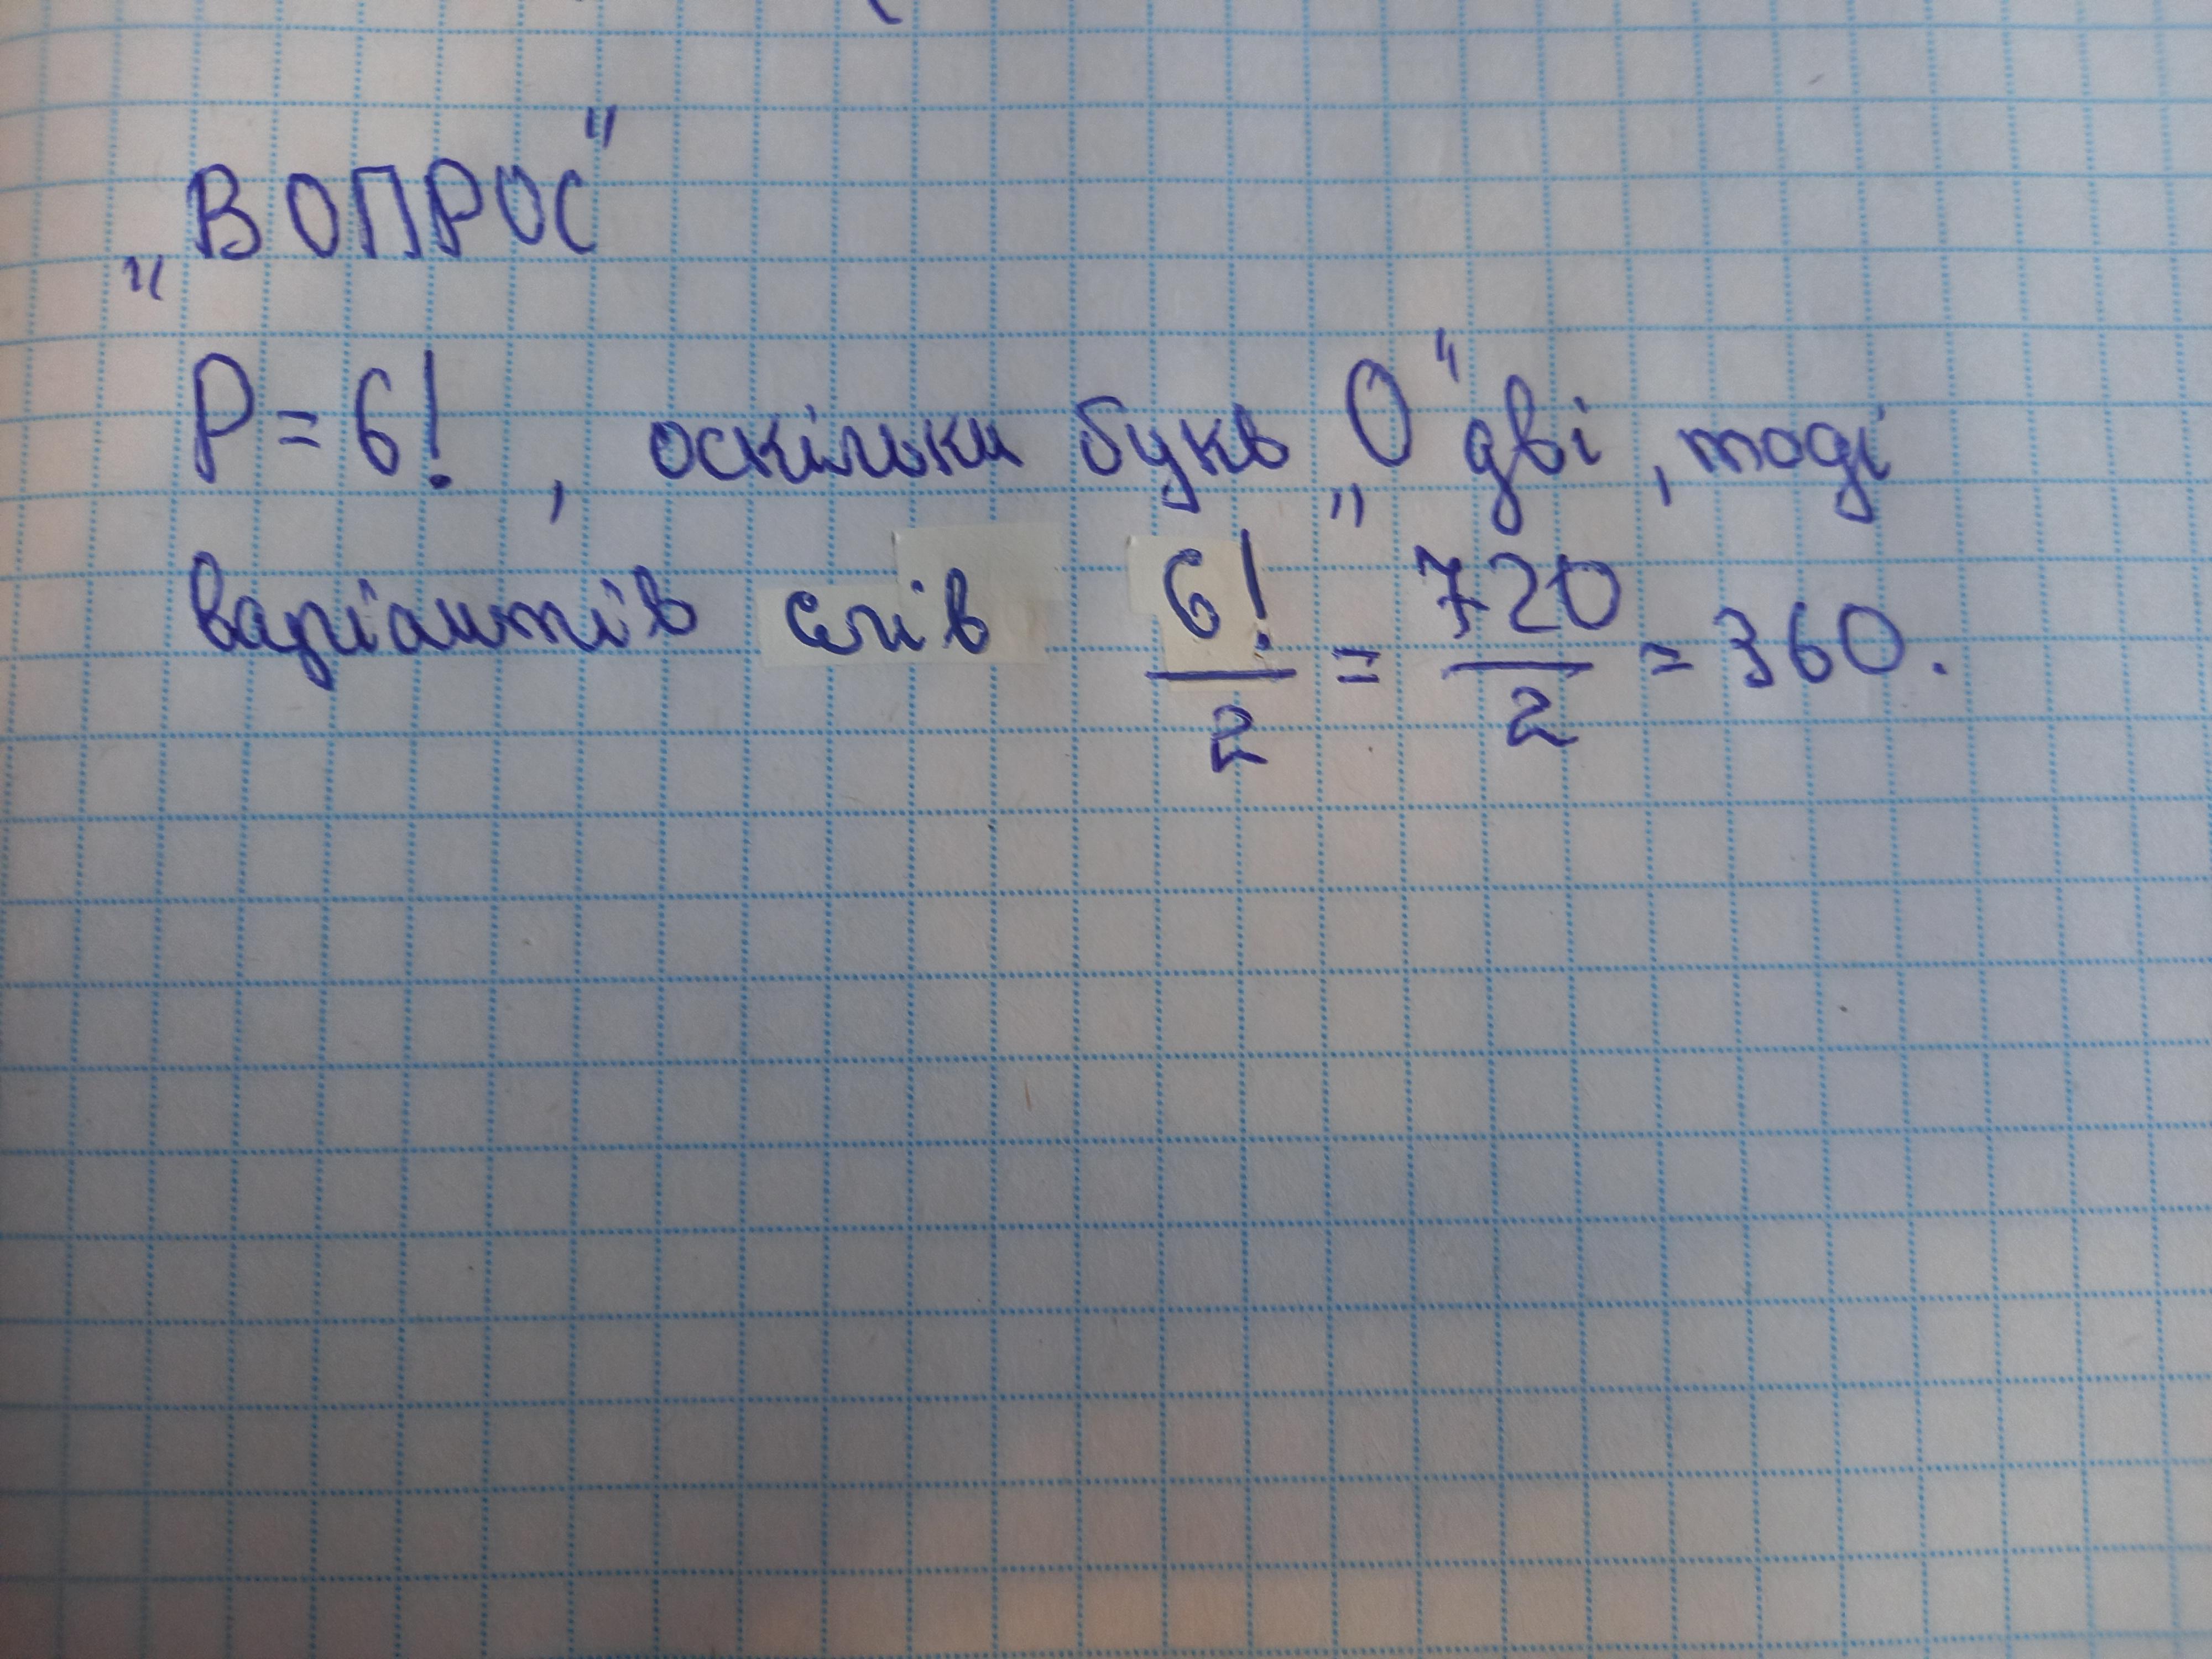 „ВОПРОС“
P = 6! , оскільки букв „О“ дві, тоді
варіантів слів 6!/2 = 720/2 = 360.